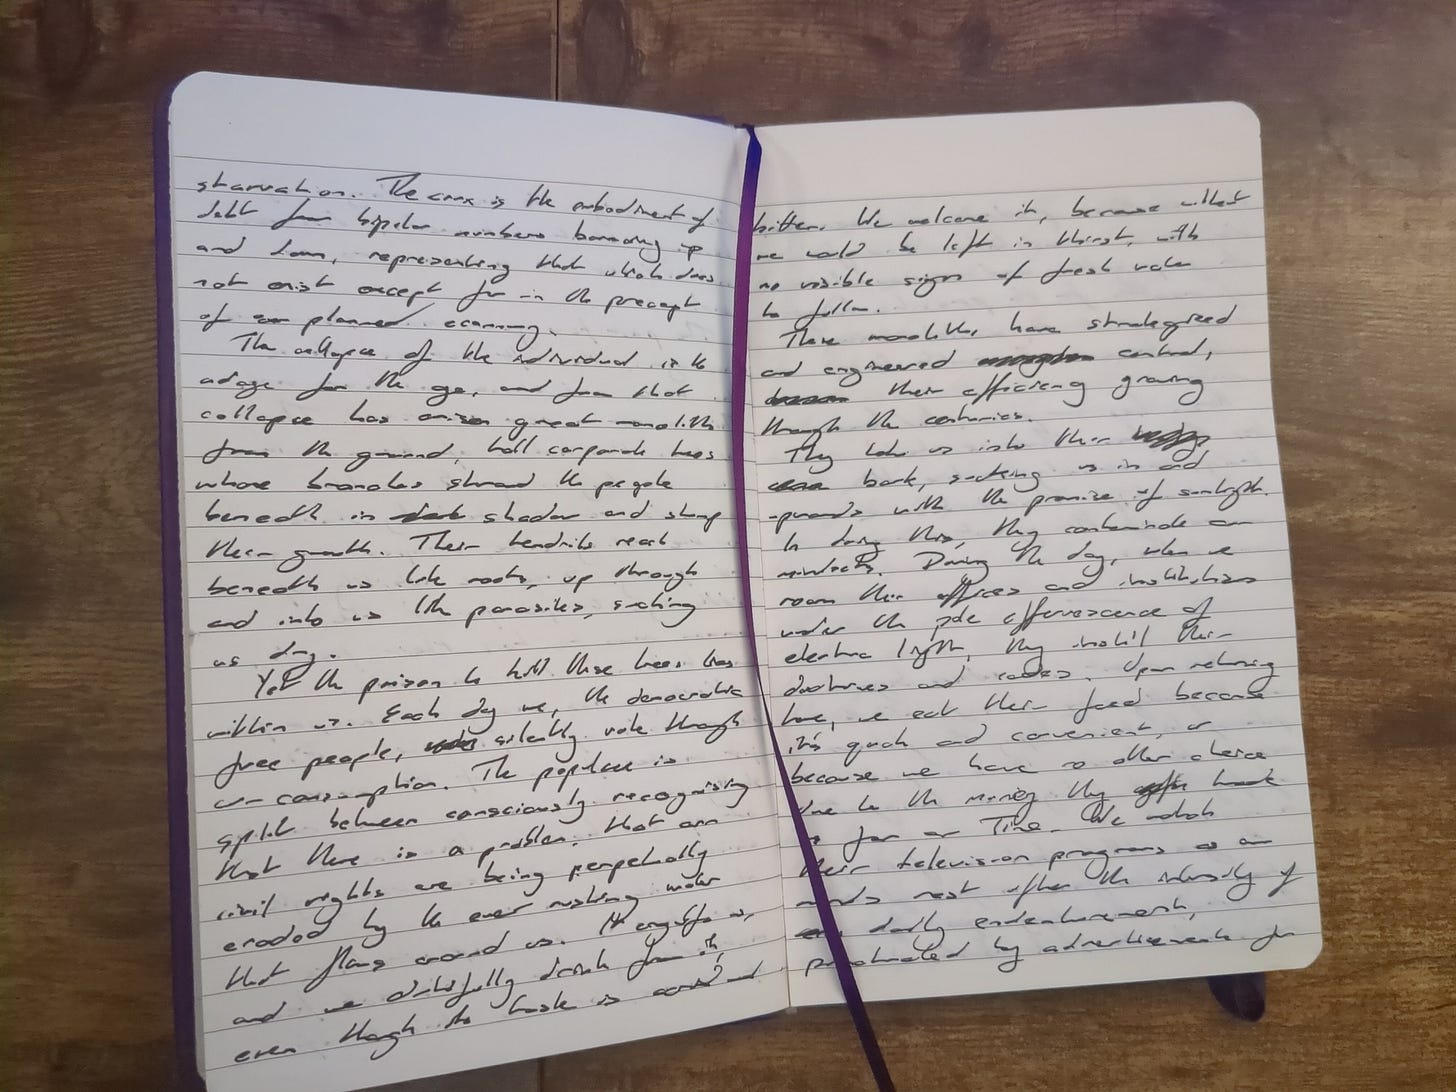 starvation. The crux is the embodiment of
debt from bipolar numbers bouncing up
and down, representing that which does
not exist except for in the precept
of our planned economy.
The collapse of the individual is the
adage for the age, and from that
collapse has arisen great monoliths
from the ground, tall corporate trees
whose branches shroud the people
beneath in shadow and stomp
their growth. Their tendrils reach
beneath us like roots, up through
and into us like parasites, sucking
us dry.
Yet the poison to kill these trees lies
within us. Each day we, the democratic
free people, silently vote through
our consumption. The populace is
split between consciously recognising
that there is a problem, that our
civil rights are being perpetually
eroded by the ever rushing water
that flows around us. It engulfs us,
and we dutifully drink from it,
even though the taste is and
bitter. We welcome it, because without
we would be left in thirst, with
no visible signs of fresh water
to follow.
These monoliths, have strategized
and engineered control,
their efficiency growing
through the centuries.
They take us into their
bark, sucking us in and
upwards with the promise of sunlight.
In doing this, they contaminate our
mindsets. During the day, when we
roam their offices and institutions
under the pale effervescence of
electric light, they instill their
doctrines and codes. Upon returning
home, we eat their food because
it's quick and convenient, or
because we have no other choice
due to the money they
us for our Time. We watch
their television programs as our
minds rest after the intensity of
daily endeavours,
punctuated by advertisements for